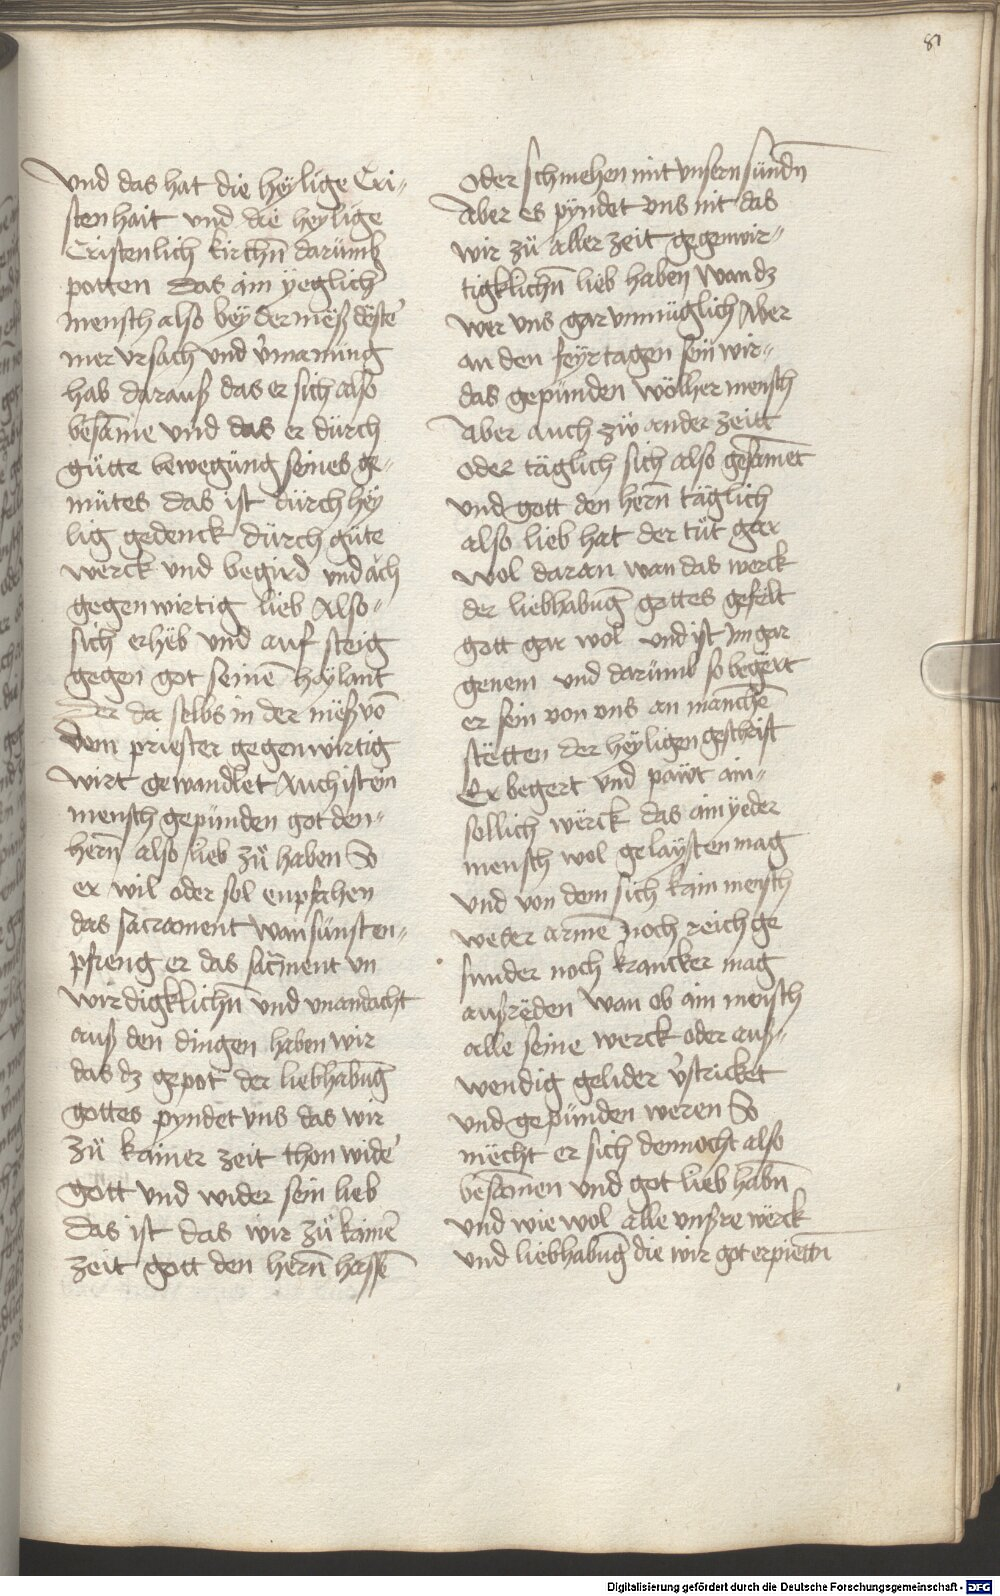 81
vnd das hat die heylige Cri-
stenhait vnd die heylige
Cristenlich kirchn̄ darümb
potten das ain yeglich
mensch also bey der meß dester
mer vrsach vnd v̉manüng
hab darauß das er sich also
besam̄e vnd das er dürch
gütte bewegüng seines ge-
mütes das ist dürch hey
lig gedenck dürch güte
werck vnd begird vnd ach
gegenwirtig lieb Also-
sich erheb vnd auf steig
gegen got seinē haylant
der da selbs in der meß vō
dem priester gegenwirtig
wirt gewandlet Auch ist ein
mensch gepünden got den-
hern̄ also lieb zü haben So
er wil oder sol enpfahen
das sacrament wan sünst en-
pfieng er das sacm̄ent vn
wirdigklichn̄ vnd vnandacht
auß den dingen haben wir
das dz gepot der liebhabūg
gottes pyndet vns das wir
zü kainer zeit thon wider
gott vnd wider sein lieb
das ist das wir zü kainē
zeit gott den hern̄ hassē
oder schmehen mit vnsern sündn̄
Aber es pyndet vns nit das
wir zü aller zeit gegenwir-
tigklichn̄ lieb haben wan dz
wer vns gar vnmüglich Aber
an den feyrtagen sein wir-
das gepünden wölher mensch
Aber auch zw ander zeitt
oder täglich sich also gesām̄et
vnd gott den hern̄ täglich
also lieb hat der tüt gar
wol daran wan das werck
der liebhabūg gottes gefelt
gott gar wol vnd ist Im gar
genem vnd darümb so begert
er sein von vns an manchē
stetten der heyligen geschrift
Er begert vnd päwt ain-
sollich werck das ain yeder
mensch wol gelaysten mag
vnd von dem sich kain mensch
weder armē noch reich ge
sunder noch krancker mag
außreden wan ob ain mensch
alle seine werck oder auß-
wendig gelider v̉stricket
vnd gepünden weren So
mecht er sich dennocht also
besam̄en vnd got lieb habn̄
vnd wie wol alle vnßre werck
vnd liebhabūg die wir got erpiettn̄
Digitalisierung gefördert durch die Deutsche Forschungsgemeinschaft - DFG